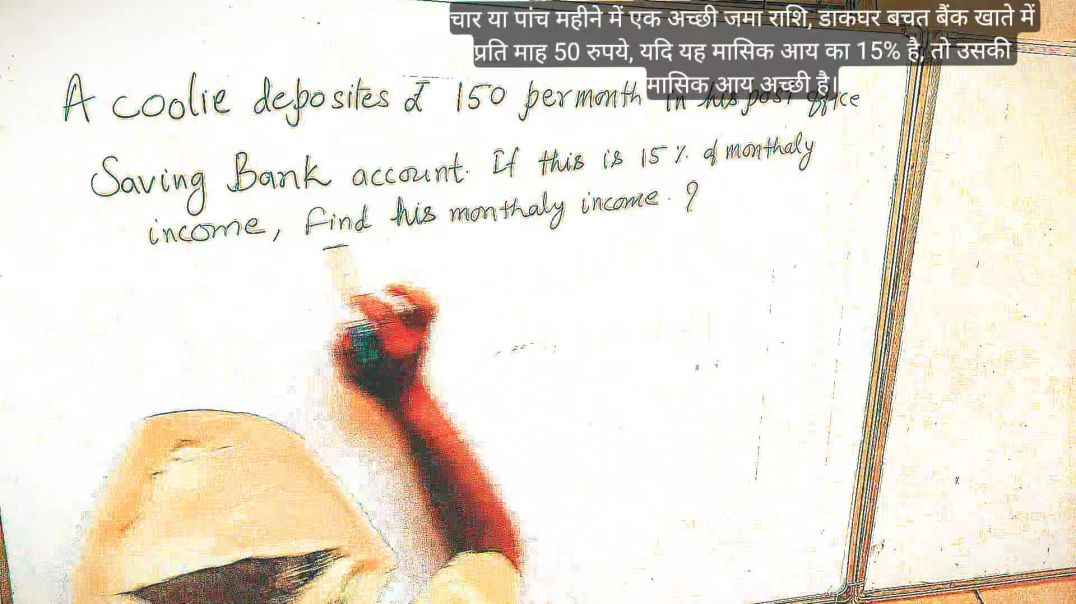 चार या पांच महीने में एक अच्छी जमा राशि, डाकघर बचत बैंक खाते में
प्रति माह 50 रुपये, यदि यह मासिक आय का 15% है, तो उसकी
मासिक आय अच्छी है।
A coolie deposites ₹ 150 per month in his post office
Saving Bank account. If this is 15 % of monthaly
income, Find his monthaly income. ?